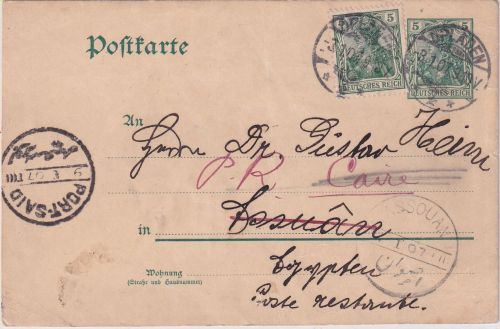 Postkarte
5 5
DEUTSCHES REICH
5 5
DEUTSCHES REICH
An
Herrn Dr. Gustav Heim
Caire
in Assuân
Egypten
Wohnung
(Straße und Hausnummer)
Poste restante.
PORT-SAID
ASSOUAN